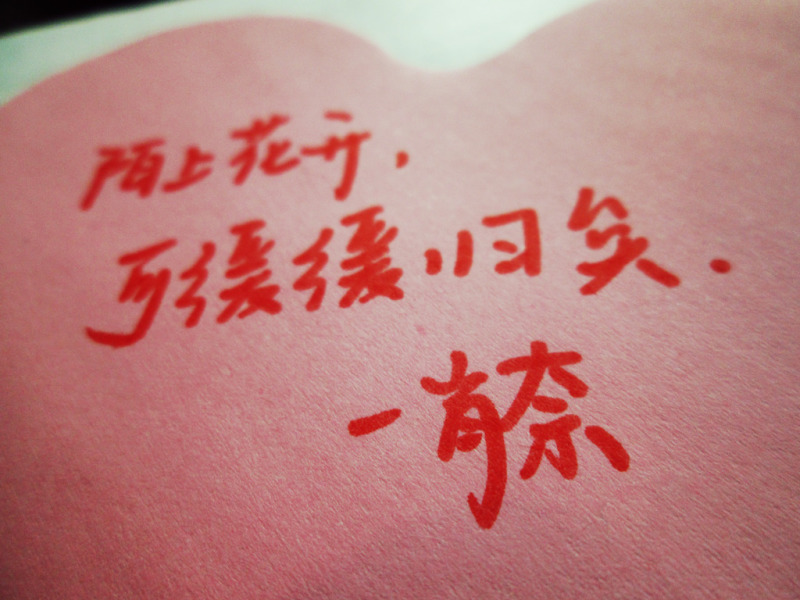 陌上花开,
可缓缓归矣.
—肖奈